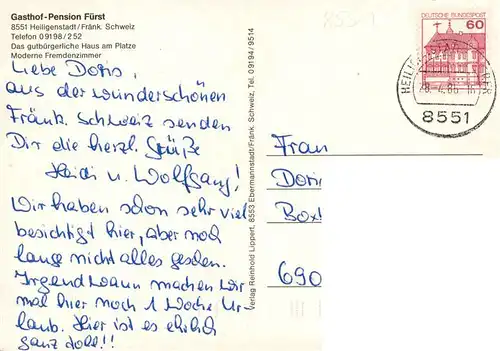 Gasthof-Pension Fürst
8551 Heiligenstadt/Fränk. Schweiz
Telefon 09198/252
Das gutbürgerliche Haus am Platze
Moderne Fremdenzimmer
Liebe Doris,
aus der wunderschönen
Fränk. Schweiz senden
Dir die herzl. Grüße
Heidi u. Wolfgang!
Wir haben schon sehr viel
besichtigt hier, aber noch
lange nicht alles gesehen.
Irgendwann machen wir
mal hier noch 1 Woche Ur-
laub. Hier ist es ehrlich
ganz toll!!
Verlag Reinhold Lippert, 8553 Ebermannstadt/Fränk. Schweiz, Tel. 09194/9514
8551
DEUTSCHE BUNDESPOST
60
8551
Frau
Doris
Boxb
690